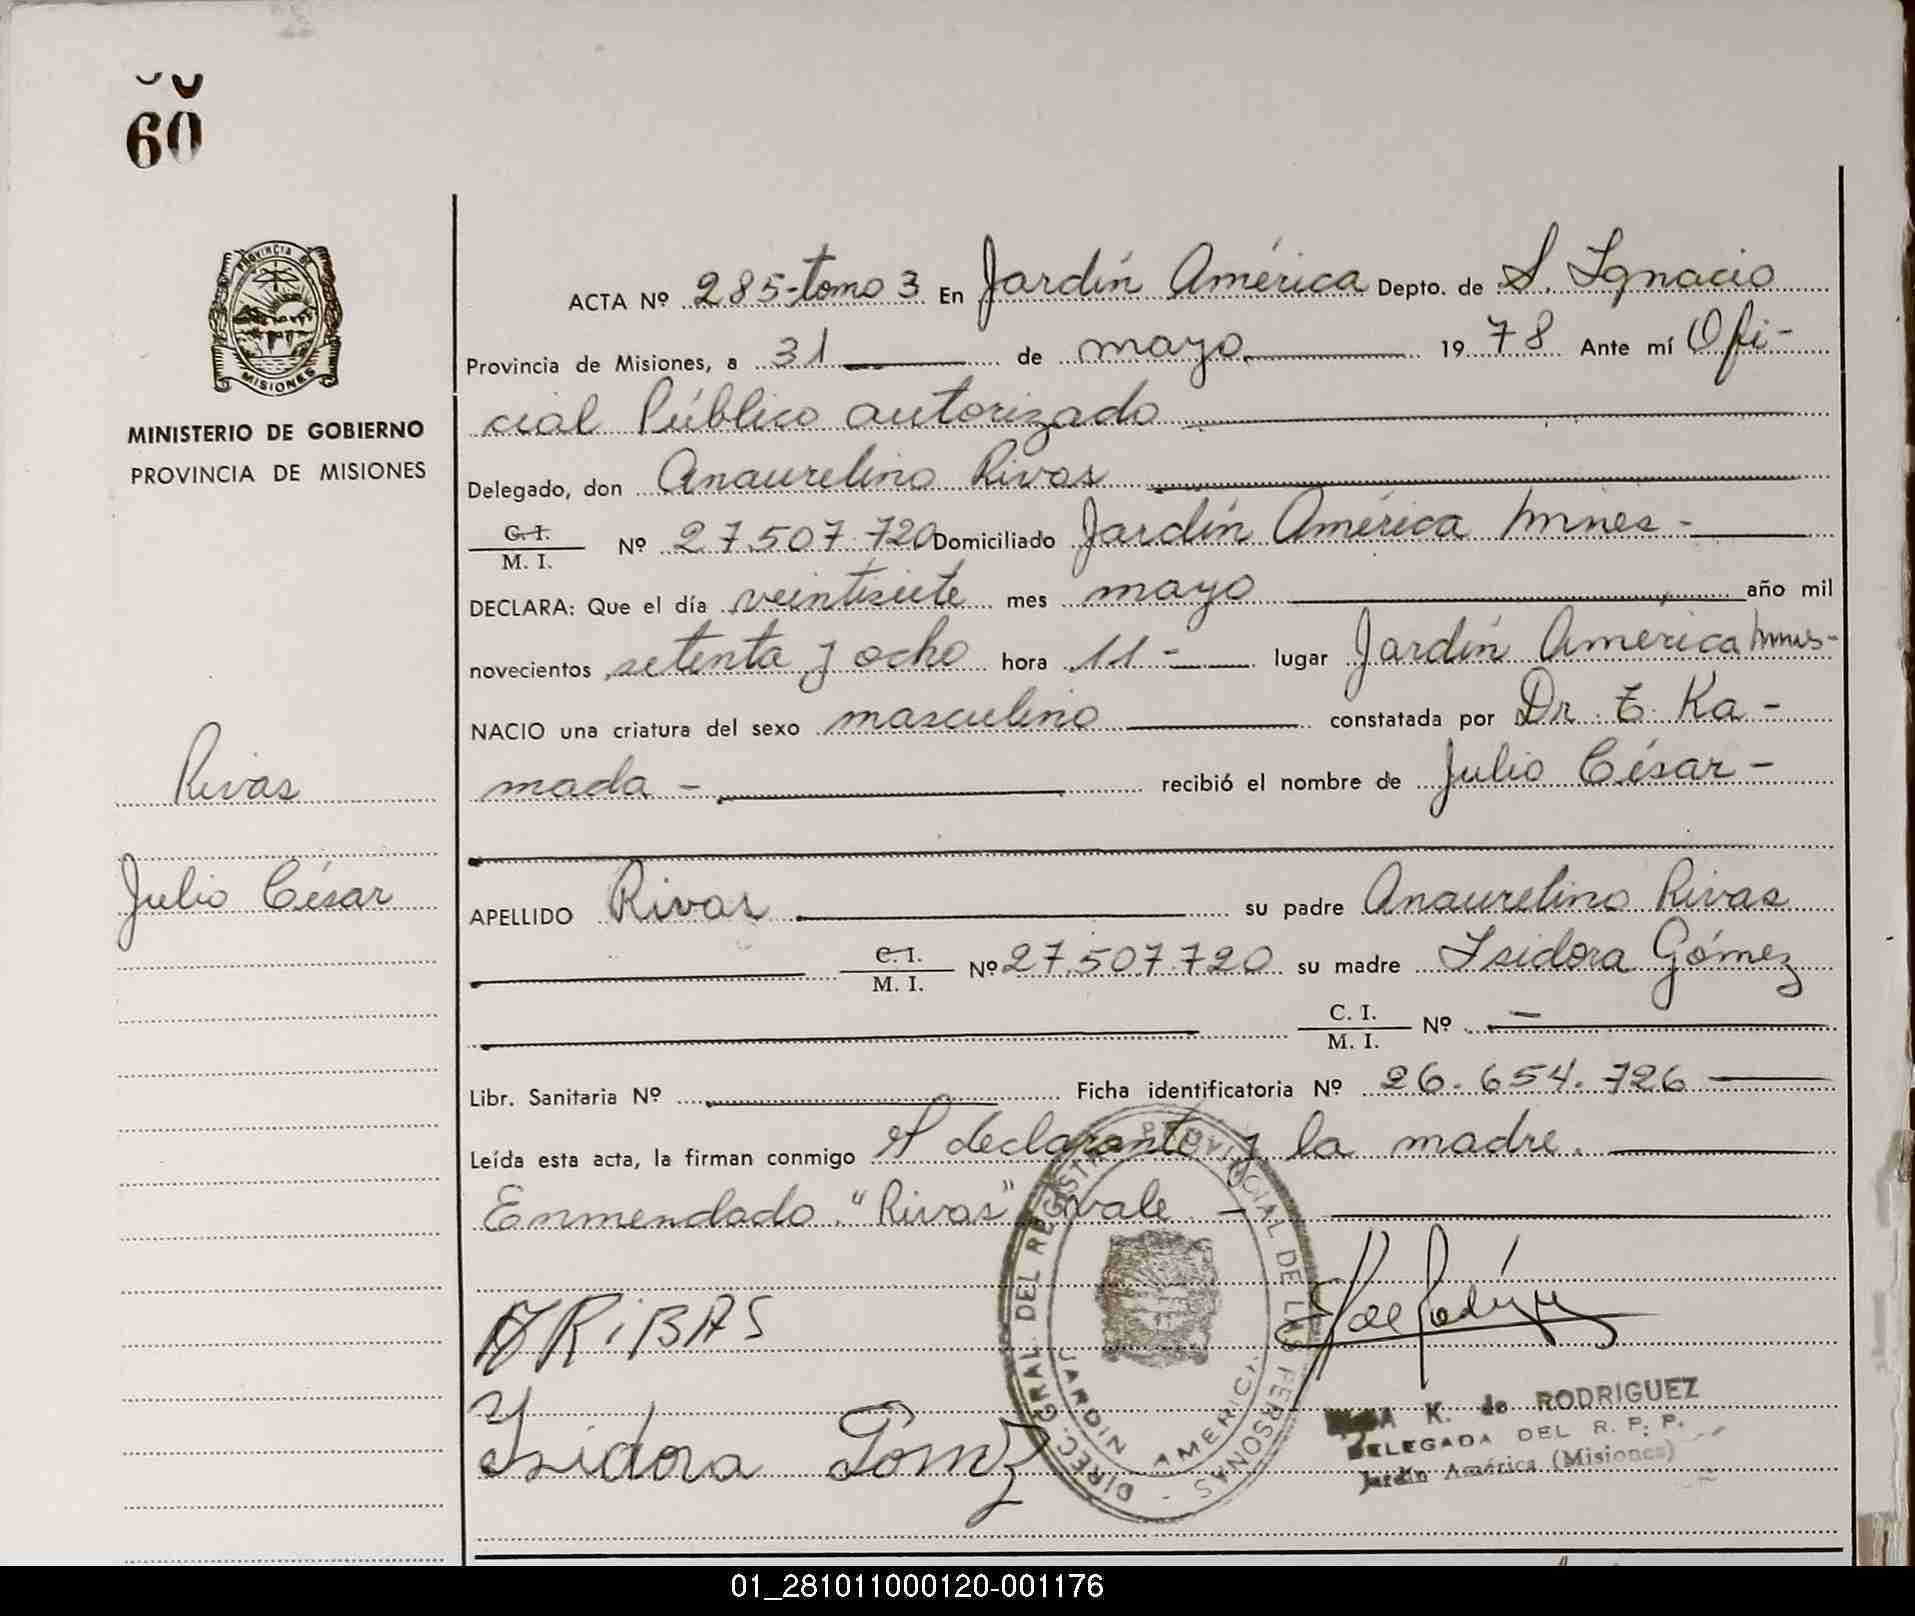 60
PROVINCIA DE
MISIONES
MINISTERIO DE GOBIERNO
PROVINCIA DE MISIONES
Rivas
Julio César
ACTA Nº 285-tomo 3 En Jardín América Depto. de S. Ignacio
Provincia de Misiones, a 31 de mayo 1978 Ante mí Ofi-
cial Público autorizado
Delegado, don Anaurelino Rivas
C. I.
M. I. Nº 27.507.720 Domiciliado Jardín América Mnes-
DECLARA: Que el día veintisiete mes mayo año mil
novecientos setenta y ocho hora 11- lugar Jardín América Mnes-
NACIO una criatura del sexo masculino constatada por Dr. T. Ka-
mada - recibió el nombre de Julio César -
APELLIDO Rivas su padre Anaurelino Rivas
C. I.
M. I. Nº 27.507.720 su madre Isidora Gómez
C. I.
M. I. Nº -
Libr. Sanitaria Nº Ficha identificatoria Nº 26.654.726
Leída esta acta, la firman conmigo el declarante y la madre.
Enmendado "Rivas" vale -
A RiBAS
Isidora Gomz
DIREC. GRAL. DEL REGISTRO PROVINCIAL DE LAS PERSONAS -
JARDIN AMERICA
K. de RODRIGUEZ
DELEGADA DEL R. P. P.
Jardín América (Misiones)
01_281011000120-001176